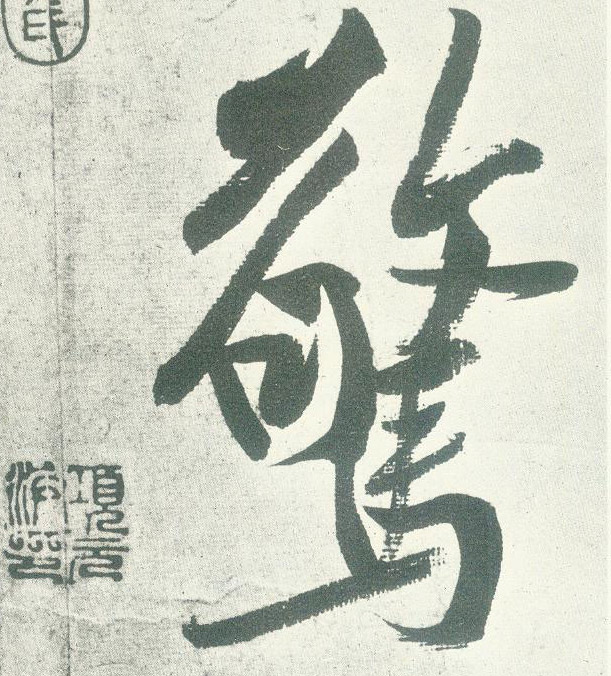 驚
項元汴印